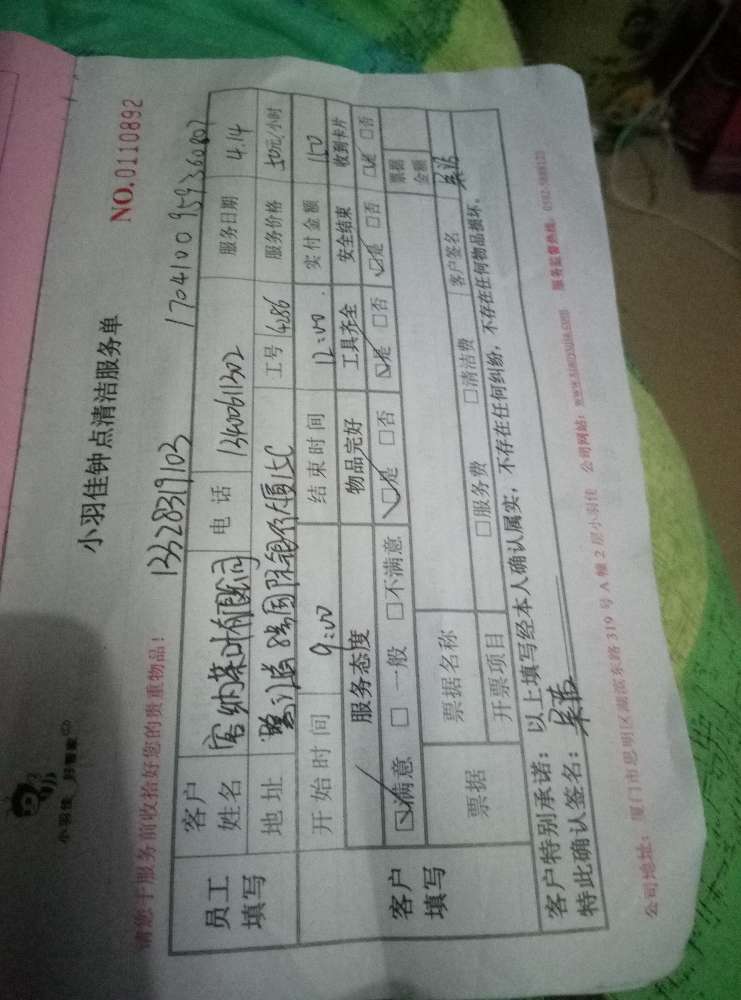 小羽佳 好管家
小羽佳钟点清洁服务单
请您于服务前收拾好您的贵重物品！
NO.0110892
13328319103
1704100959360807
员工填写
客户姓名
电话 13400611302
服务日期 4.14
地址
工号 4286
服务价格 50元/小时
开始时间 9:00
结束时间 12:00
实付金额 150
客户填写
服务态度 物品完好 工具齐全 安全结束 收到卡片
☑满意 □一般 □不满意 ☑是 □否 ☑是 □否 ☑是 □否 ☑是 □否
票据 票据名称 票据金额
开票项目 □服务费 □清洁费 客户签名
客户特别承诺：以上填写经本人确认属实，不存在任何纠纷，不存在任何物品损坏。
特此确认签名：
公司地址：厦门市思明区湖滨东路319号A幢2层小羽佳 公司网站：www.xiaoyujia.com 服务监督热线：